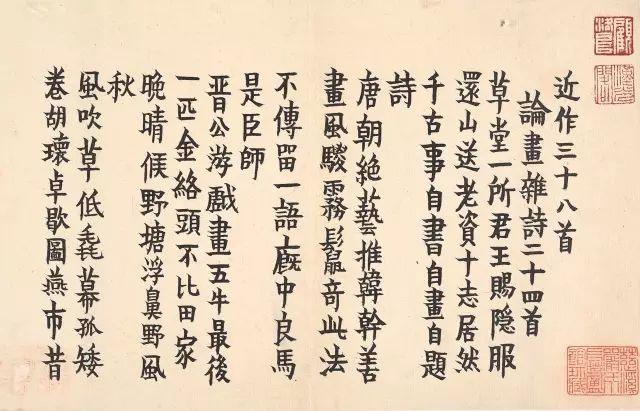 近作三十八首
論畫雜詩二十四首
草堂一所君王賜隐服
還山送老資十志居然
千古事自書自畫自題
詩
唐朝絶藝推韓幹善
畫風騣霧鬛奇此法
不傳留一語廄中良馬
是臣師
晋公游戲畫五牛最後
一匹金絡頭不比田家
晚晴候野塘浮鼻野風
秋
風吹草低毳幕孤矮
卷胡瓌卓歇圖燕市昔